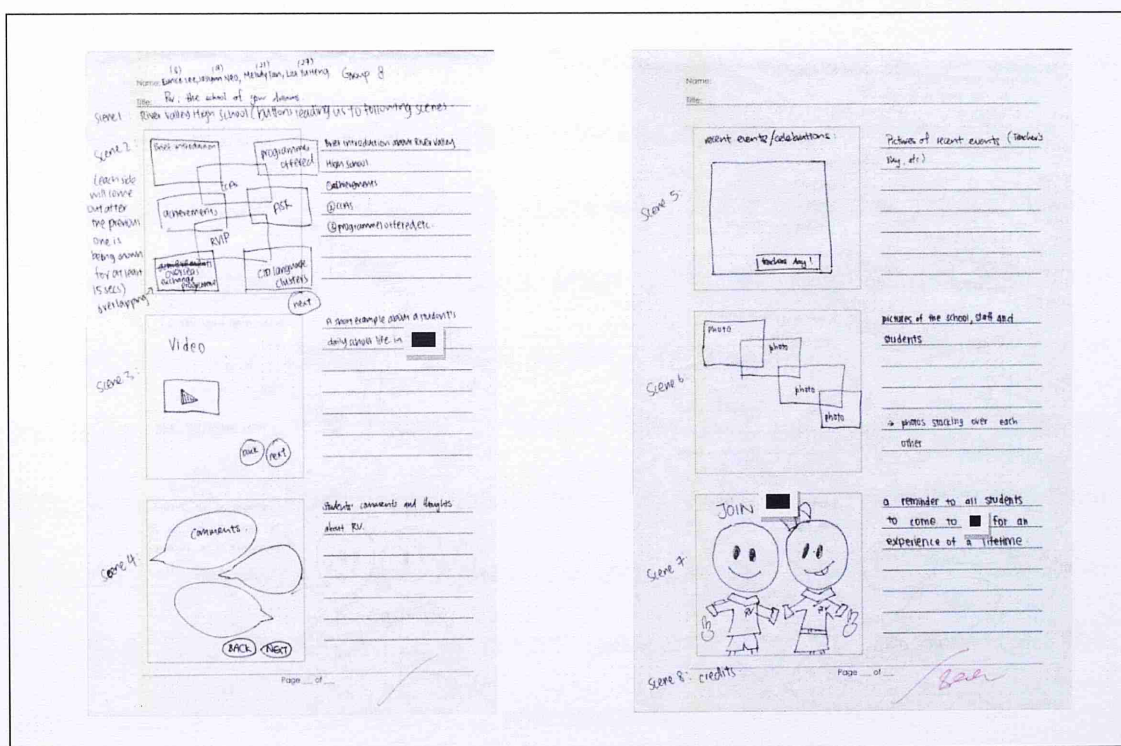 (8) (9) (21) (27)
Name: Group 8
Title: RV: the school of your dreams
Scene 1: River Valley High School (buttons leading us to following scenes.
Scene 2:
(each slide will come out after the previous one is being shown for at least 15 secs)
overlapping
Brief introduction
programmes offered
CCAs
achievements
PSK
RVIP
overseas exchange programme
CID language clusters
next
Brief introduction about River Valley
High School
@achievements
@CCAs
@programmes offered, etc.
Scene 3:
Video
back next
A short example about a student's
daily school life in
Scene 4:
Comments.
BACK NEXT
students' comments and thoughts
about RV.
Page __ of __
Name:
Title:
Scene 5:
recent events/celebrations:
teachers day!
Pictures of recent events (Teacher's
Day, etc.)
Scene 6:
photo
photo
photo
photo
pictures of the school, staff and
students
→ photos stacking over each
other
Scene 7:
JOIN
RV
RV
a reminder to all students
to come to for an
experience of a lifetime.
Scene 8: credits
Page __ of __